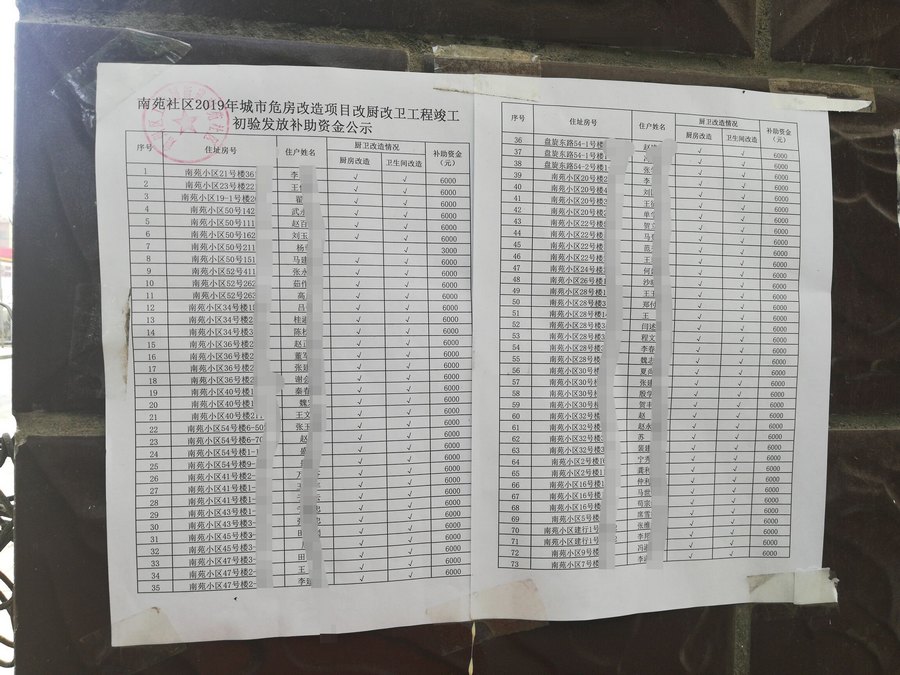 南苑社区2019年城市危房改造项目改厨改卫工程竣工
初验发放补助资金公示
序号 住址房号 住户姓名 厨卫改造情况 补助资金（元）
厨房改造 卫生间改造
1 南苑小区21号楼36 李 √ √ 6000
2 南苑小区23号楼22 王 √ √ 6000
3 南苑小区19-1号楼2 翟 √ √ 6000
4 南苑小区50号142 武 √ √ 6000
5 南苑小区50号111 赵百 √ √ 6000
6 南苑小区50号162 刘玉 √ √ 6000
7 南苑小区50号211 杨 √ 3000
8 南苑小区50号151 马建 √ √ 6000
9 南苑小区52号411 张永 √ √ 6000
10 南苑小区52号262 茹 √ √ 6000
11 南苑小区52号263 高 √ √ 6000
12 南苑小区34号楼1 吕 √ √ 6000
13 南苑小区34号楼2 桂 √ √ 6000
14 南苑小区34号楼3 陈 √ √ 6000
15 南苑小区36号楼2 赵正 √ √ 6000
16 南苑小区36号楼2 董 √ √ 6000
17 南苑小区36号楼2 张建 √ √ 6000
18 南苑小区36号楼2 谢会 √ √ 6000
19 南苑小区40号楼1 秦春 √ √ 6000
20 南苑小区40号楼1 魏 √ √ 6000
21 南苑小区40号楼2 王文 √ √ 6000
22 南苑小区54号楼6-50 张王 √ √ 6000
23 南苑小区54号楼6-70 赵 √ √ 6000
24 南苑小区54号楼1- √ √ 6000
25 南苑小区54号楼9- √ √ 6000
26 南苑小区41号楼2- √ √ 6000
27 南苑小区41号楼1- √ √ 6000
28 南苑小区41号楼1- √ √ 6000
29 南苑小区43号楼1- √ √ 6000
30 南苑小区43号楼3- 张 √ √ 6000
31 南苑小区45号楼3- 田 √ √ 6000
32 南苑小区45号楼3- √ √ 6000
33 南苑小区47号楼3- 田 √ √ 6000
34 南苑小区47号楼2- 王 √ √ 6000
35 南苑小区47号楼2- 李 √ √ 6000
序号 住址房号 住户姓名 厨卫改造情况 补助资金（元）
厨房改造 卫生间改造
36 盘旋东路54-1号楼 赵 √ √ 6000
37 盘旋东路54-1号楼 √ √ 6000
38 盘旋东路54-2号楼 张 √ √ 6000
39 南苑小区20号楼2 李 √ √ 6000
40 南苑小区20号楼4 刘 √ √ 6000
41 南苑小区20号楼3 王 √ √ 6000
42 南苑小区20号楼2 单 √ √ 6000
43 南苑小区22号楼4 贺 √ √ 6000
44 南苑小区22号楼 马 √ √ 6000
45 南苑小区22号楼 范 √ √ 6000
46 南苑小区22号楼 王 √ √ 6000
47 南苑小区24号楼1 何 √ √ 6000
48 南苑小区26号楼1 沙 √ √ 6000
49 南苑小区28号楼1 王 √ √ 6000
50 南苑小区28号楼3 郑付 √ √ 6000
51 南苑小区28号楼1 王 √ √ 6000
52 南苑小区28号楼3 闫述 √ √ 6000
53 南苑小区28号楼3 程文 √ √ 6000
54 南苑小区28号楼2 李春 √ √ 6000
55 南苑小区28号楼3 魏志 √ √ 6000
56 南苑小区30号楼 夏 √ √ 6000
57 南苑小区30号楼 张建 √ √ 6000
58 南苑小区30号楼 殷学 √ √ 6000
59 南苑小区30号楼 贺丰 √ √ 6000
60 南苑小区32号楼 赵 √ √ 6000
61 南苑小区32号楼 赵永 √ √ 6000
62 南苑小区32号楼 苏 √ √ 6000
63 南苑小区32号楼3 裴建 √ √ 6000
64 南苑小区2号楼1 宁 √ √ 6000
65 南苑小区2号楼1 龚利 √ √ 6000
66 南苑小区16号楼1 仲利 √ √ 6000
67 南苑小区16号楼 马世 √ √ 6000
68 南苑小区16号楼 苟宗 √ √ 6000
69 南苑小区5号楼 席雪 √ √ 6000
70 南苑小区建行1号 张维 √ √ 6000
71 南苑小区建行1号 李 √ √ 6000
72 南苑小区9号楼 冯 √ √ 6000
73 南苑小区7号楼 李 √ √ 6000